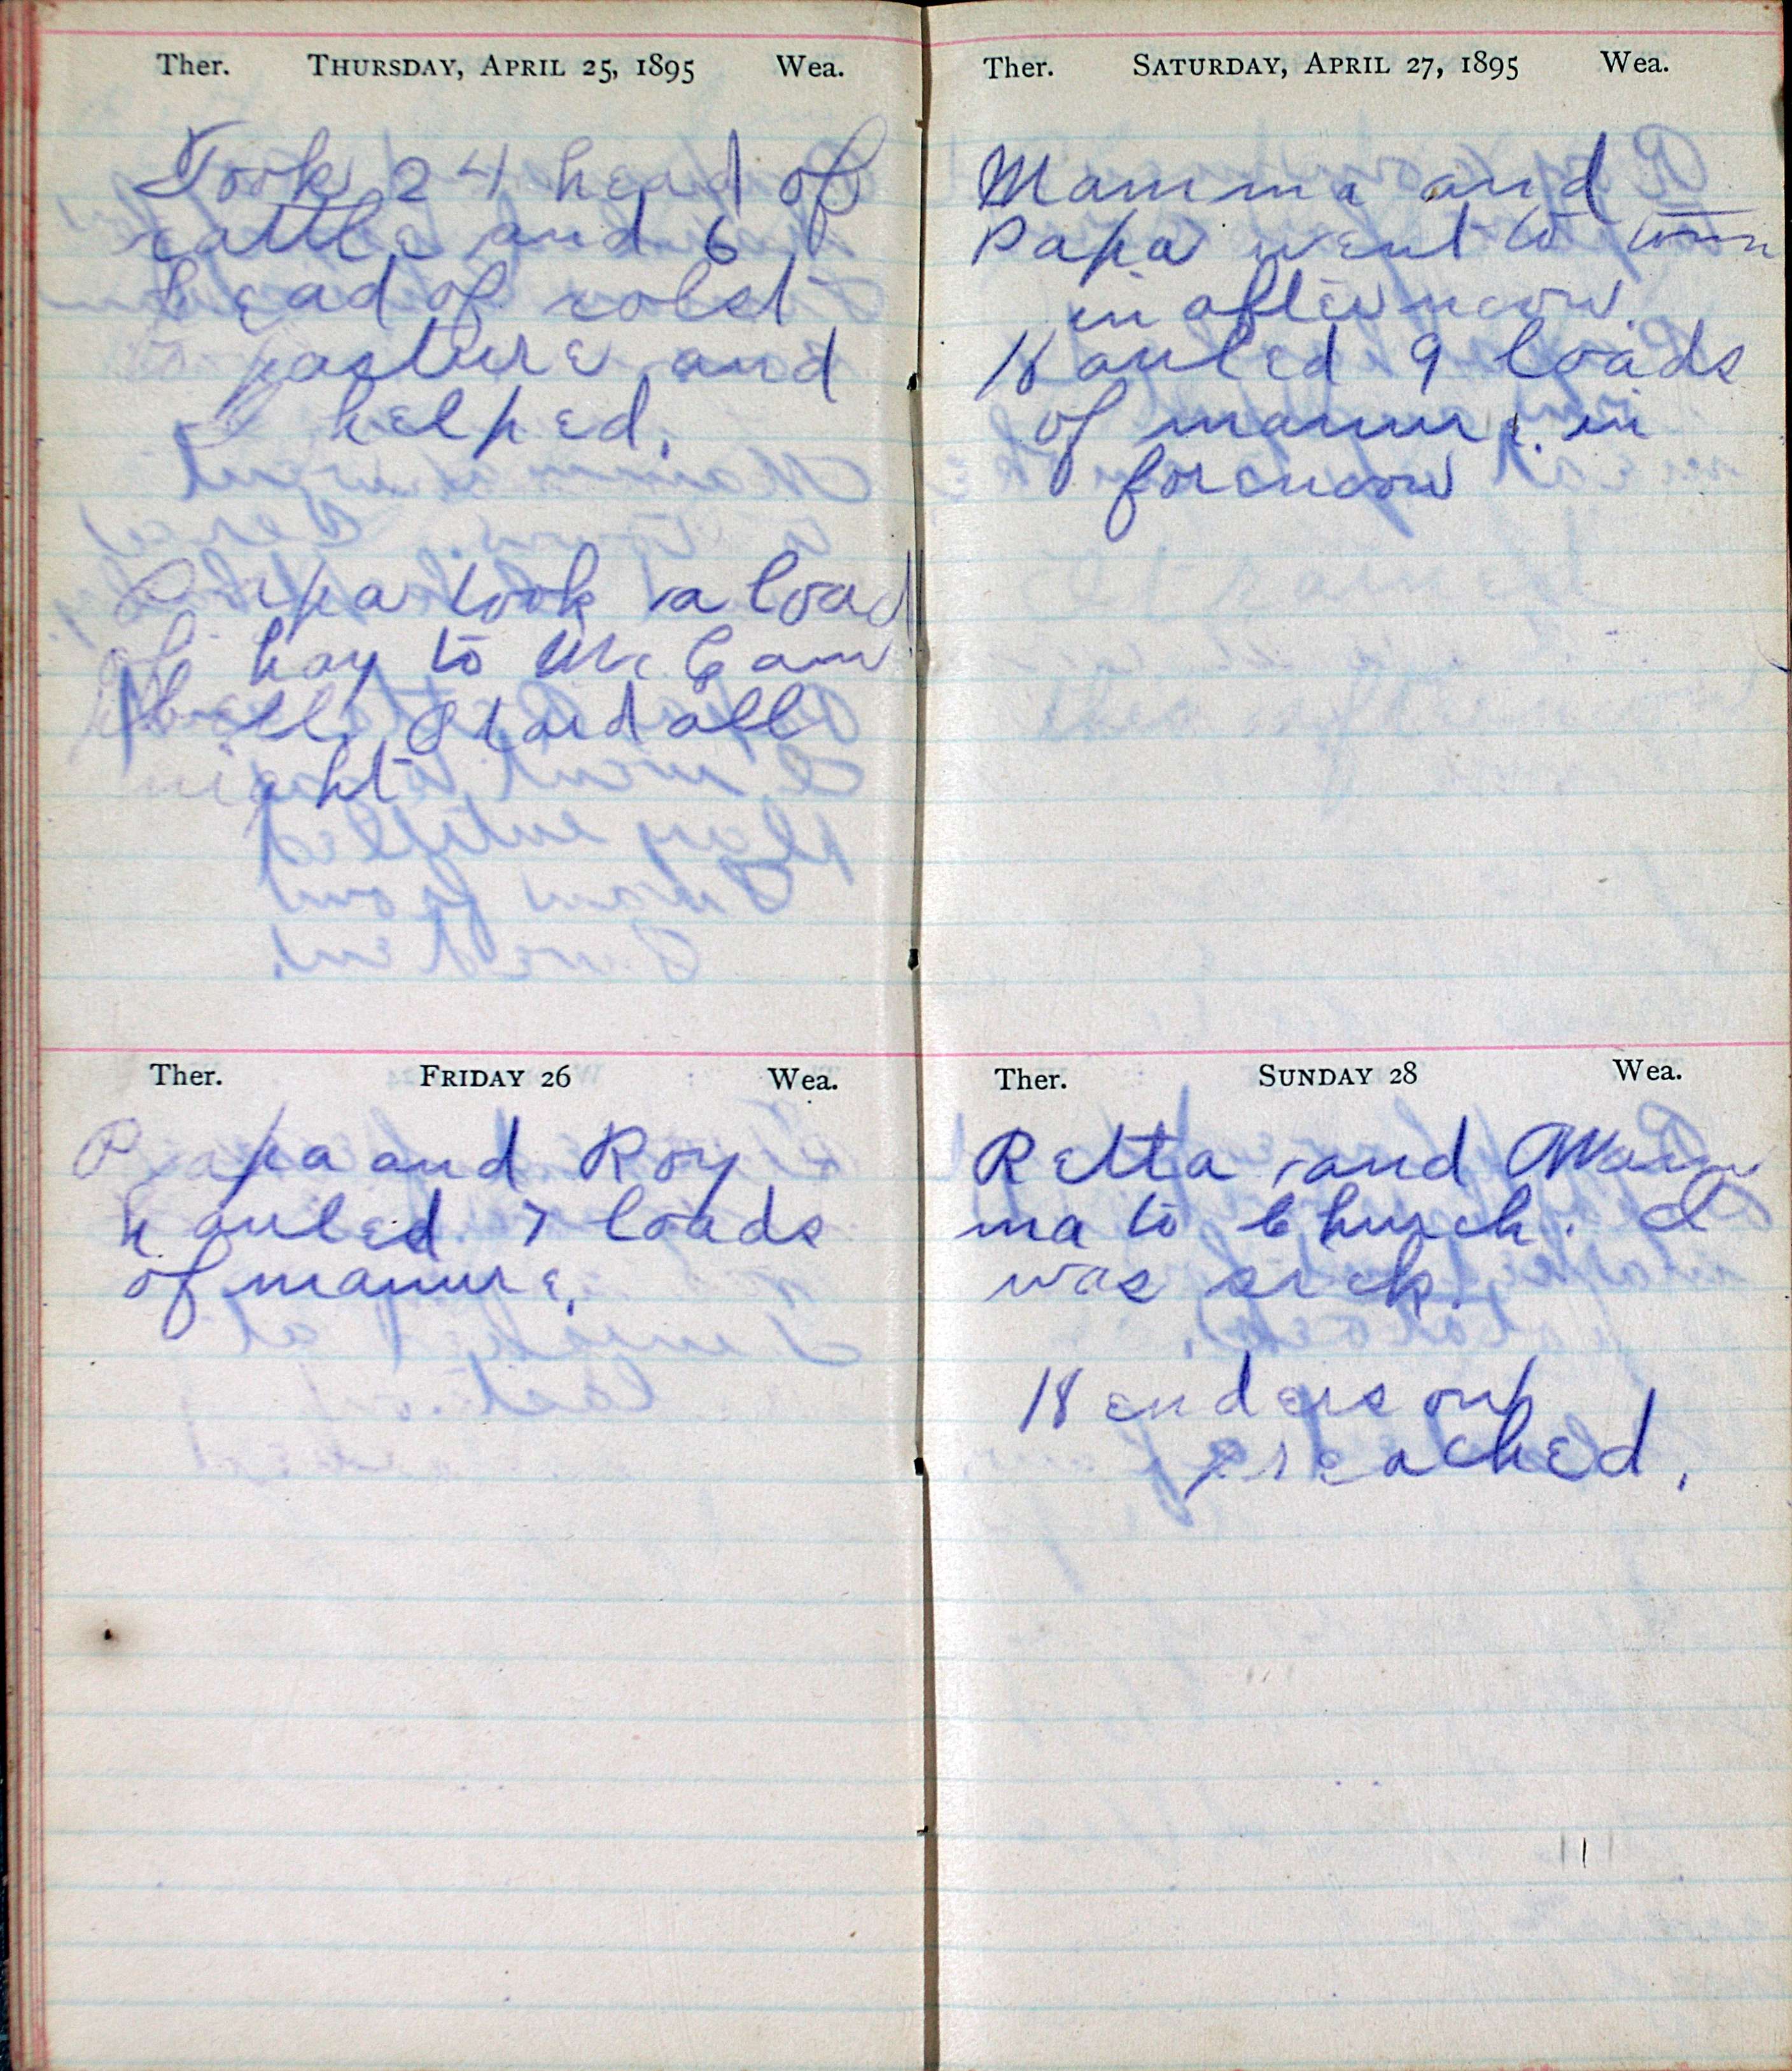 Ther. Thursday, April 25, 1895 Wea.
Took 24 head of
cattle and 6
head of colst
to pasture and
I helped.
Papa took a load
of hay to Mc Cam
pbell. Staid all
night
Ther. Friday 26 Wea.
Papa and Roy
hauled 7 loads
of manure.
Ther. Saturday, April 27, 1895 Wea.
Mamma and
Papa went to town
in afternoon.
Hauled 9 loads
of manure in
forenoon
Ther. Sunday 28 Wea.
Retta and Mam
ma to Church. I
was sick.
Henderson
preached.